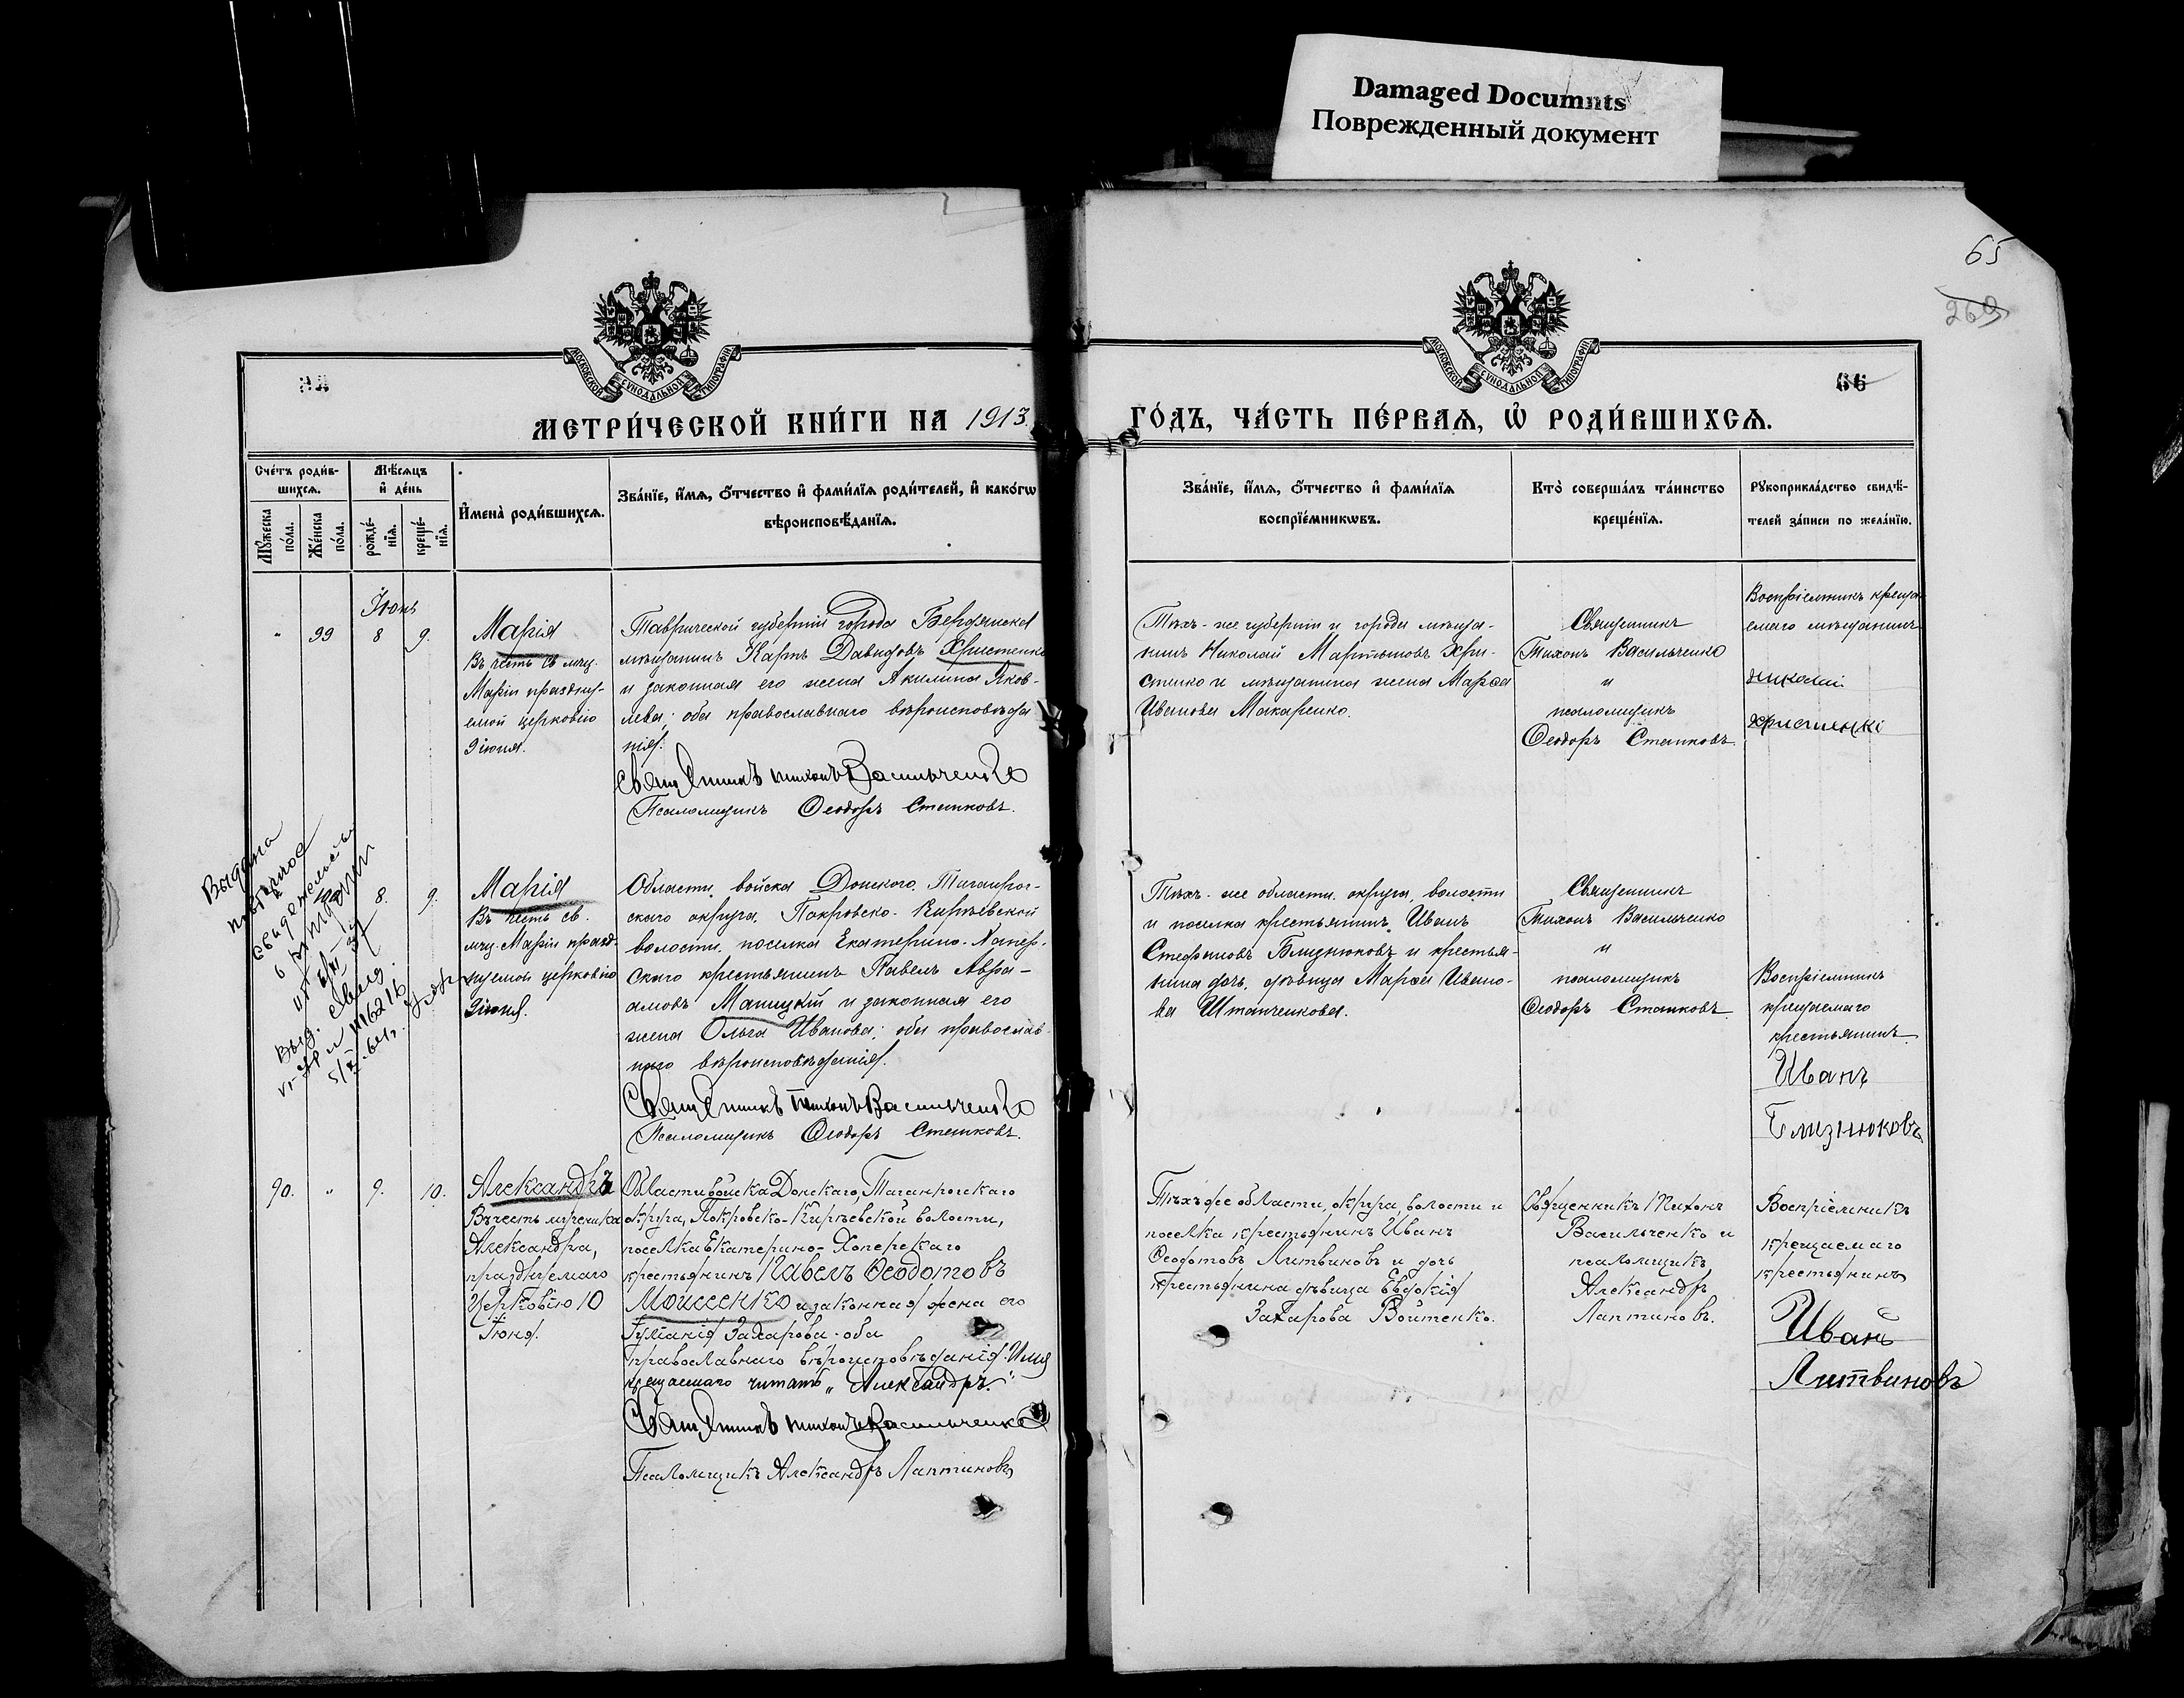 Damaged Documnts
Поврежденный документ
65
269
66
МОСКОВСКОЙ СѴНОДАЛЬНОЙ ТИПОГРАФІИ
МОСКОВСКОЙ СѴНОДАЛЬНОЙ ТИПОГРАФІИ
МЕТРИ́ЧЕСКОЙ КНИ́ГИ НА 1913.
ГО́ДЪ, ЧА́СТЬ ПЕ́РВАѦ, Ѡ҆ РОДИ́ВШИХСѦ.
Сче́тъ роди́в-
шихсѧ.
Мꙋ́жеска
по́ла.
Же́нска
по́ла.
Мѣ́сѧцъ
и҆ де́нь
рожде́-
нїѧ.
креще́-
нїѧ.
И҆мена̀ роди́вшихсѧ.
Зва́нїе, и҆́мѧ, ѻ҆́тчество и҆ фами́лїѧ роди́телей, и҆ како́гѡ
вѣроисповѣ́данїѧ.
Зва́нїе, и҆́мѧ, ѻ҆́тчество и҆ фами́лїѧ
воспрїе́мникѡвъ.
Кто̀ соверша́лъ та́инство
креще́нїѧ.
Рꙋкоприкла́дство свидѣ́-
телей за́писи по жела́нїю.
Іюнь
" 99 8 9.
Марія
Въ честь св. мчц.
Маріи праздну-
емой церковію
9 іюня.
Таврической губерніи города Бердянска
мѣщанинъ Карпъ Давидовъ Христенко
и законная его жена Акилина Яков-
лева; оба православнаго вѣроисповѣда
нія.
Священникъ Тихонъ Васильченко
Псаломщикъ Ѳеодоръ Станковъ.
Тѣхъ-же губерніи и города мѣща-
нинъ Николай Мартыновъ Хри-
стенко и мѣщанина жена Марѳа
Иванова Макаренко.
Священникъ
Тихонъ Васильченко
и
псаломщикъ
Ѳеодоръ Станковъ.
Воспріемникъ креща-
емаго мѣщанинъ
Николай
Выдано
повторное
свидетельство
8. 9.
Марія
Въ честь св.
мчц. Маріи празд-
нуемой церковію
9 іюня.
Области войска Донского, Таганрог-
скаго округа, Покровско-Кирѣевской
волости, поселка Екатерино-Хопер-
скаго крестьянинъ Павелъ Авра-
амовъ Маницкій и законная его
жена Ольга Иванова; оба православ-
наго вѣроисповѣданія.
Священникъ Тихонъ Васильченко
Псаломщикъ Ѳеодоръ Станковъ.
Тѣхъ-же области, округа, волости
и поселка крестьянинъ Иванъ
Стефановъ Близнюковъ и крестья-
нина дочь, дѣвица Марѳа Ивано-
ва Штанченкова.
Священникъ
Тихонъ Васильченко
и
псаломщикъ
Ѳеодоръ Станковъ.
Воспріемникъ
крещаемаго
крестьянинъ
Иванъ
Близнюковъ
90. " 9. 10.
Александръ
Въ честь мученика
Александра,
празднуемаго
Церковію 10
Іюня.
Области войска Донскаго, Таганрогскаго
округа, Покровско-Кирѣевской волости,
поселка Екатерино-Хоперскаго
крестьянинъ Павелъ Ѳеодотовъ
Моисеенко и законная жена его
Іуліанія Захарова - оба
православнаго вѣроисповѣданія. Имя
крещаемаго читать "Александръ."
Священникъ Тихонъ Васильченко
Псаломщикъ Александръ Лаптиновъ
Тѣхъ же области, округа, волости и
поселка крестьянинъ Иванъ
Ѳеодотовъ Литвиновъ и дочь
крестьянина дѣвица Евдокія
Захарова Войтенко.
Священникъ Тихонъ
Васильченко и
псаломщикъ
Александръ
Лаптиновъ.
Воспріемникъ
крещаемаго
крестьянинъ
Иванъ
Литвиновъ